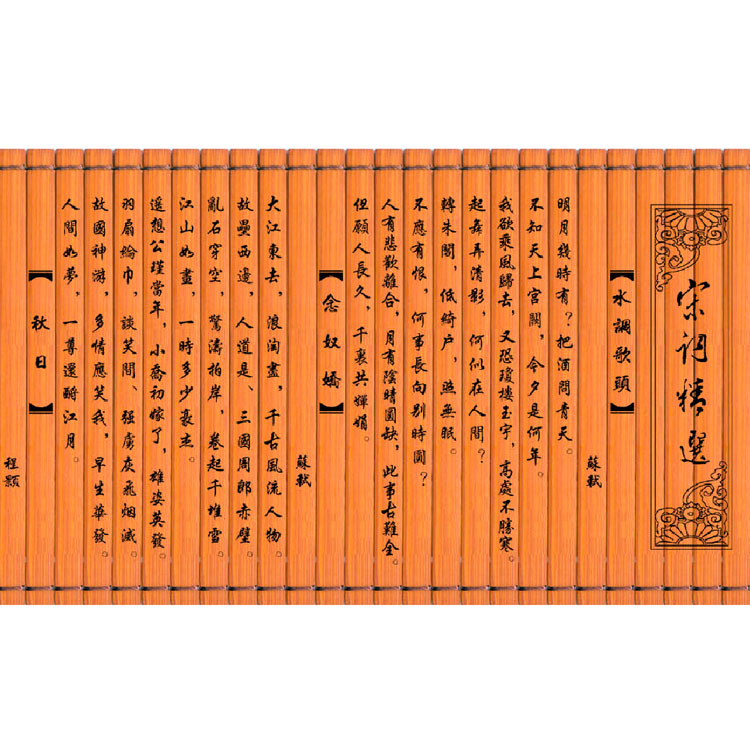 宋詞精選
【水調歌頭】
蘇軾
明月幾時有？把酒問青天。
不知天上宮闕，今夕是何年。
我欲乘風歸去，又恐瓊樓玉宇，高處不勝寒。
起舞弄清影，何似在人間？
轉朱閣，低綺戶，照無眠。
不應有恨，何事長向別時圓？
人有悲歡離合，月有陰晴圓缺，此事古難全。
但願人長久，千裏共嬋娟。
【念奴嬌】
蘇軾
大江東去，浪淘盡，千古風流人物。
故壘西邊，人道是、三國周郎赤壁
亂石穿空，驚濤拍岸，卷起千堆雪
江山如畫，一時多少豪杰。
遥想公瑾當年，小喬初嫁了，雄姿英發。
羽扇綸巾，談笑間、强虜灰飛烟滅。
故國神游，多情應笑我，早生華發。
人間如夢，一尊還酹江月。
【秋日】
程顥